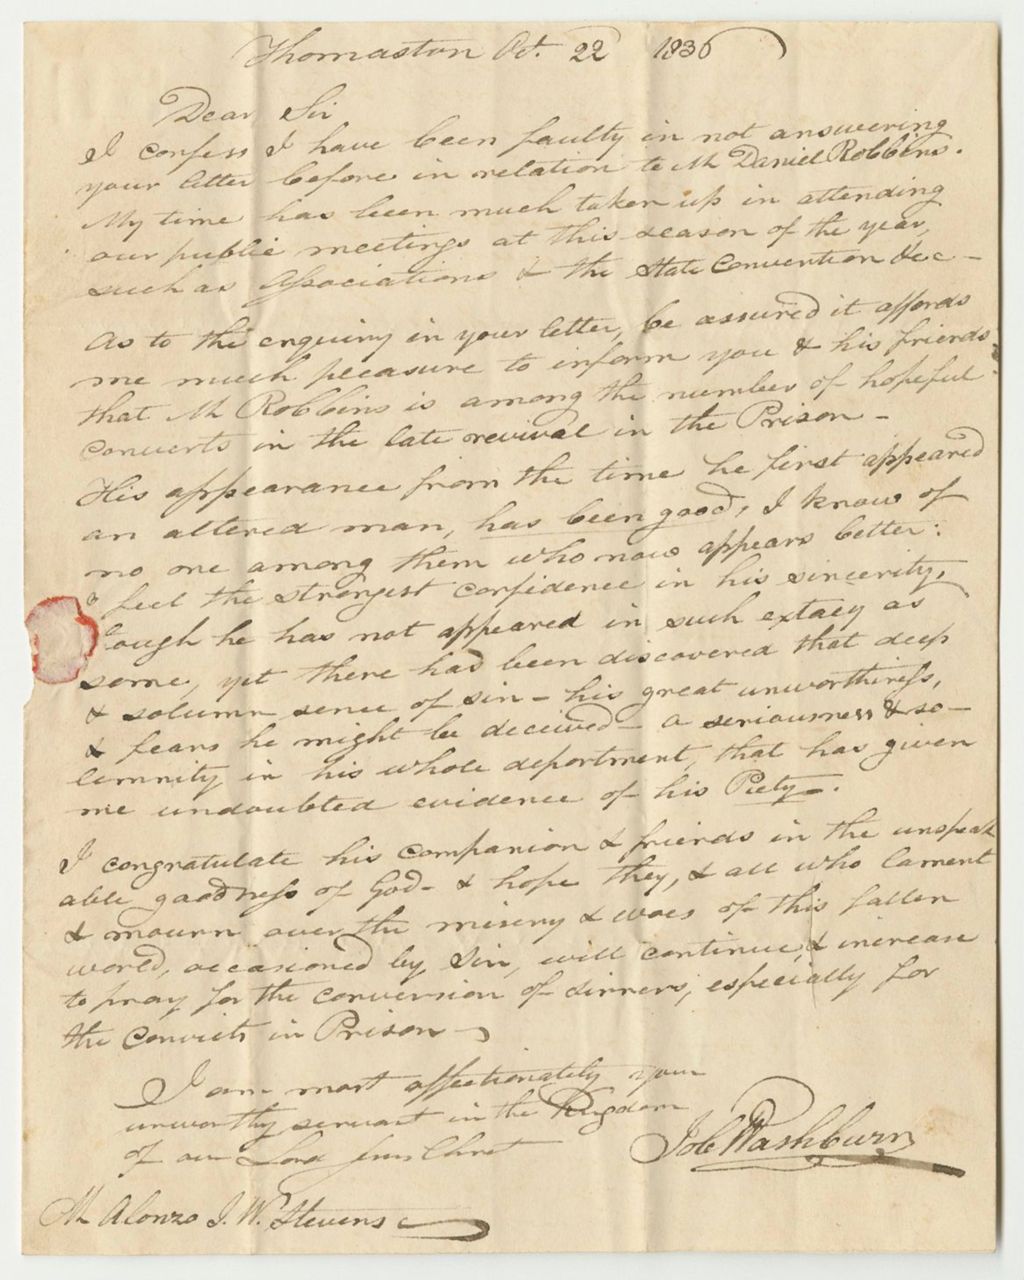 Thomaston Oct. 22 1830
Dear Sir
I confess I have been faulty in not answering
your letter before in relation to Mr Daniel Robbins.
My time has been much taken up in attending
our public meetings at this season of the year,
such as Associations & the State Convention &c -
As to the enquiry in your letter, be assured it affords
me much pleasure to inform you & his friends
that Mr Robbins is among the number of hopeful
converts in the late revival in the Prison -
His appearance from the time he first appeared
an altered man, has been good, I know of
no one among them who now appears better:
I feel the strongest confidence in his sincerity,
ough he has not appeared in such extacy as
some, yet there has been discovered that deep
& solumn sence of sin - his great unworthiness,
& fears he might be deceived - a seriousness & so-
lemnity in his whole deportment, that has given
me undoubted evidence of his Piety -.
I congratulate his companion & friends in the unspeak
able goodness of God - & hope they, & all who lament
& mourn over the misery & woes of this fallen
world, occasioned by Sin, will continue & increase
to pray for the conversion of sinners, especially for
the Convicts in Prison -
I am most affectionately your
unworthy servant in the Kingdom
of our Lord Jesus Christ
Job Washburn
Mr Alonzo J. W. Stevens